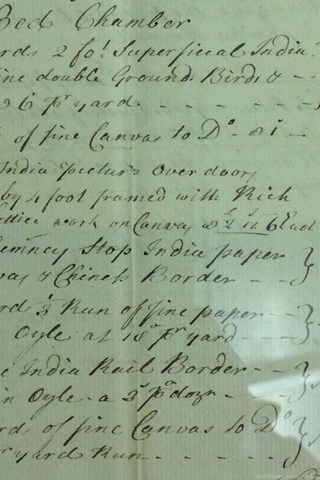 Bed Chamber
rds 2 fo.t Superficial India
ine double Ground Birds & - -
2 6 Pr yard - - - - -
of fine Canvas to Do - a 1s -
India Pictures over doors
by 4 foot framed with Rich
work on Canvas a 2 12 6 Ead
Chemney Stop India paper
vas & Chinese Border - -
rds 1/3 Run of fine paper - -
Oyle at 18 Pr yard - -
e India Rail Border - -
in Oyle - a 3s Pr dozn -
rd of fine Canvas to Do
yard Run - - - -